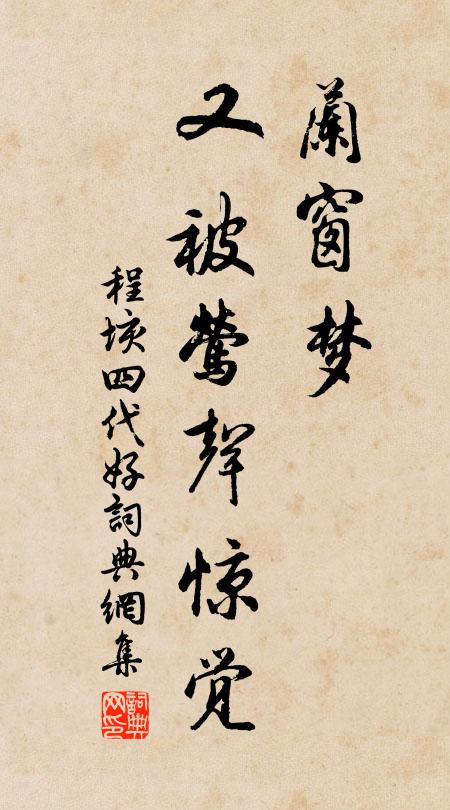 蘭窗梦
又被莺聲惊觉
程垓四代好詞典網集
詞典网印